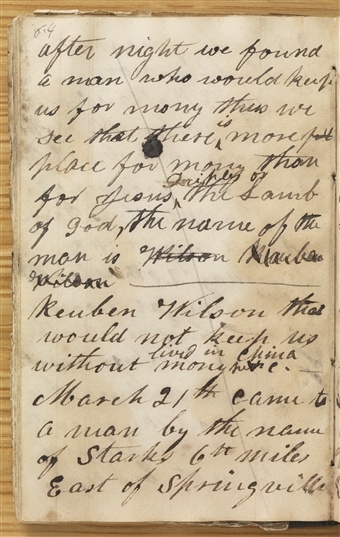 64
after night we found
a man who would keep
us for mony thus we
see that there is more
place for mony than
for Jesus Disiples or the Lamb
of god, the name of the
man is Wilson Reuben
Wilson
Reuben Wilson that
would not keep us
without mony lived in China &c.
March 21th came to
a man by the name
of Starks 6th miles
East of Springville